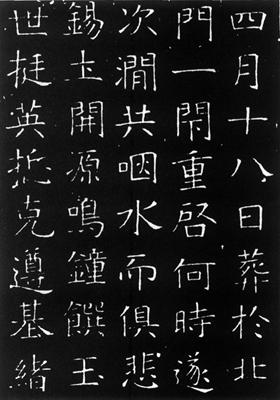 四月十八日葬於北
門一閇重啓何時遂
次澗共咽水而俱悲
錫土開源鳴鐘饌玉
世挺英抵克遵基緒